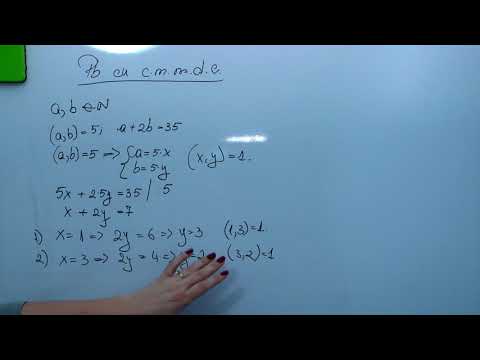 Pb cu c.m.m.d.c.
a, b ∈ N
(a,b)=5; a+2b=35
(a,b)=5 => { a=5·x (x,y)=1.
b=5y
5x + 25y = 35 | 5
x + 2y = 7
1) x=1 => 2y = 6 => y=3 (1,3)=1.
2) x=3 => 2y = 4 => y=2 (3,2)=1